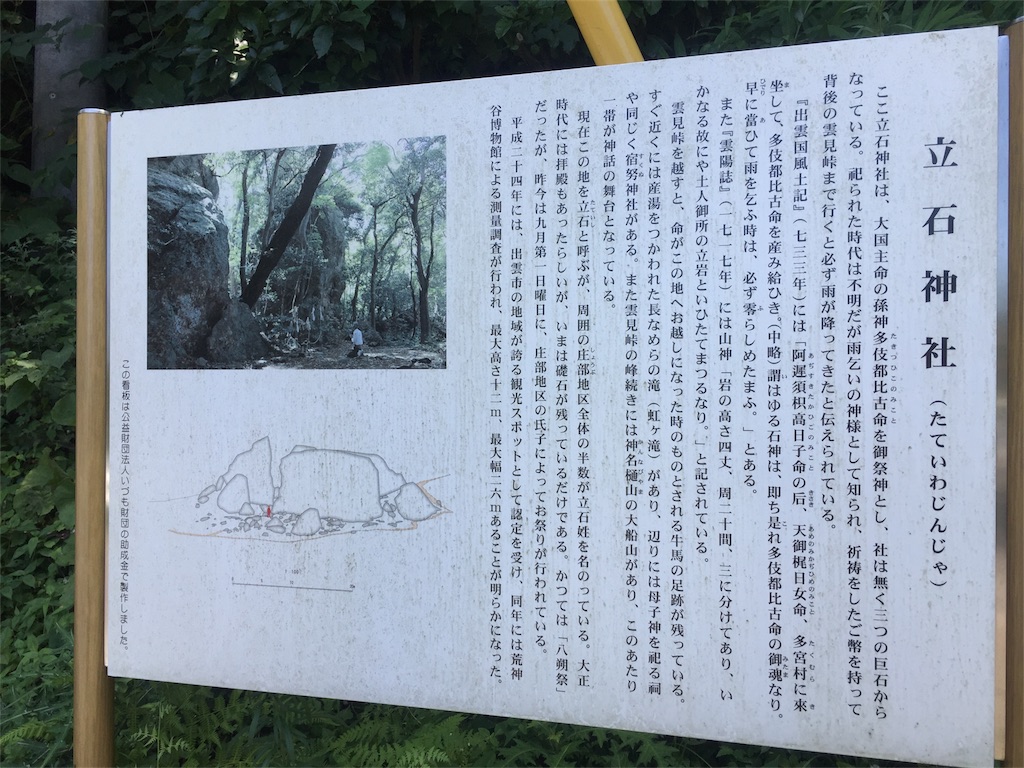 立石神社（たていわじんじゃ）
ここ立石神社は、大国主命の孫神多伎都比古命を御祭神とし、社は無く三つの巨石から
なっている。祀られた時代は不明だが雨乞いの神様として知られ、祈祷をしたご幣を持って
背後の雲見峠まで行くと必ず雨が降ってきたと伝えられている。
『出雲国風土記』（七三三年）には「阿遅須枳高日子命の后、天御梶日女命、多宮村に來
坐して、多伎都比古命を産み給ひき。（中略）謂はゆる石神は、即ち是れ多伎都比古命の御魂なり。
早に當ひて雨を乞ふ時は、必ず零らしめたまふ。」とある。
また『雲陽誌』（一七一七年）には山神「岩の高さ四丈、周二十間、三に分けてあり、い
かなる故にや土人御所の立岩といひたてまつるなり。」と記されている。
雲見峠を越すと、命がこの地へお越しになった時のものとされる牛馬の足跡が残っている。
すぐ近くには産湯をつかわれた長なめらの滝（虹ヶ滝）があり、辺りには母子神を祀る祠
や同じく宿努神社がある。また雲見峠の峰続きには神名樋山の大船山があり、このあたり
一帯が神話の舞台となっている。
現在この地を立石と呼ぶが、周囲の庄部地区全体の半数が立石姓を名のっている。大正
時代には拝殿もあったらしいが、いまは礎石が残っているだけである。かつては「八朔祭」
だったが、昨今は九月第一日曜日に、庄部地区の氏子によってお祭りが行われている。
平成二十四年には、出雲市の地域が誇る観光スポットとして認定を受け、同年には荒神
谷博物館による測量調査が行われ、最大高さ十二ｍ、最大幅二六ｍあることが明らかになった。
この看板は公益財団法人いづも財団の助成金で製作しました。